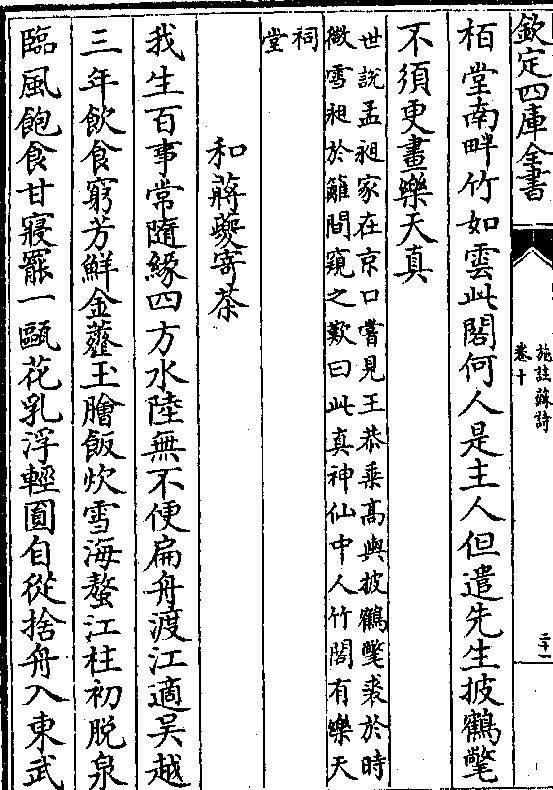 欽定四庫全書
施註蘇詩
卷十
二十一
栢堂南畔竹如雲此閣何人是主人但遣先生披鶴氅
不須更畫樂天真
世說孟昶家在京口嘗見王恭乗髙輿披鶴氅裘於時
微雪昶於籬間窺之歎曰此真神仙中人竹閣有樂天
祠
堂
和蔣夔寄茶
我生百事常隨緣四方水陸無不便扁舟渡江適吳越
三年飲食窮芳鮮金虀玉膾飯炊雪海螯江柱初脫泉
臨風飽食甘寢罷一甌花乳浮輕圓自從捨舟入東武